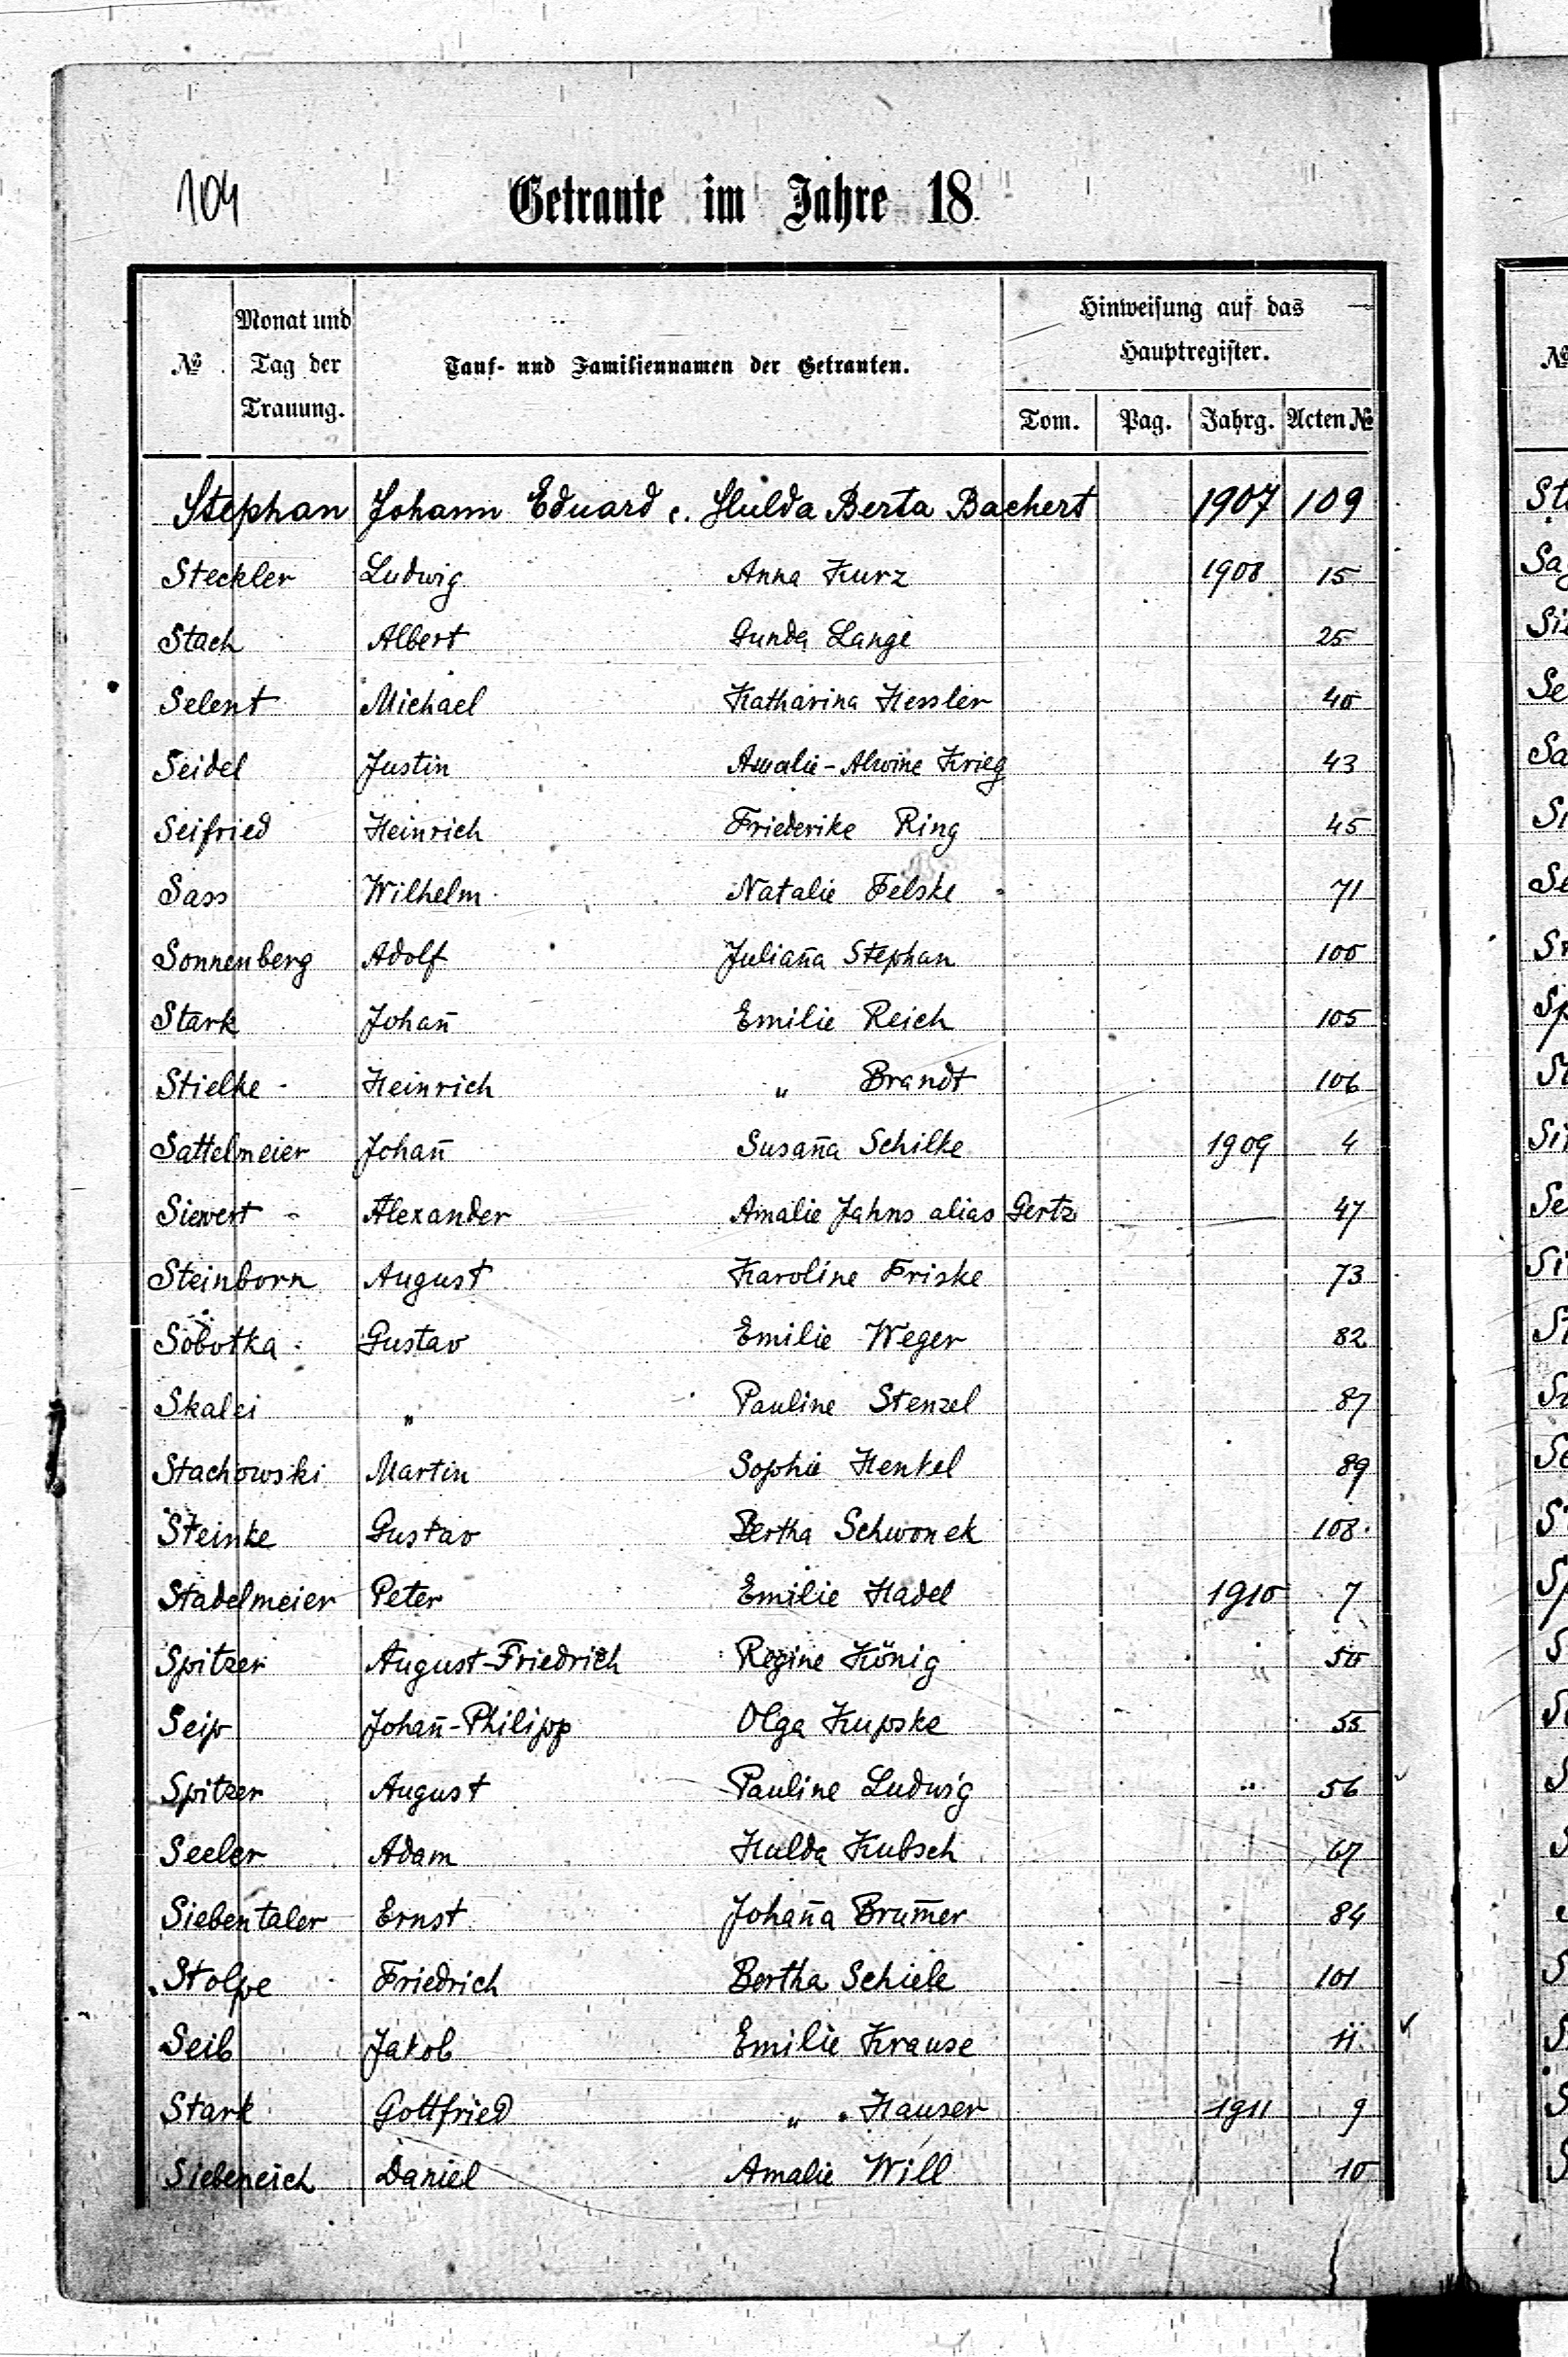 104
Getraute im Jahre 18
№ Monat und Tag der Trauung. Tauf- und Familiennamen der Getrauten. Hinweisung auf das Hauptregister.
Tom. Pag. Jahrg. Acten №
Stephan Johann Eduard c. Hulda Berta Bachert 1907 109
Steckler Ludwig Anna Kurz 1908 15
Stach Albert Gunda Lange 25
Selent Michael Katharina Kessler 40
Seidel Justin Amalie-Alwine Krieg 43
Seifried Heinrich Friederike Ring 45
Sass Wilhelm Natalie Felske 71
Sonnenberg Adolf Julian̄a Stephan 100
Stark Johan̄ Emilie Reich 105
Stielke Heinrich " Brandt 106
Sattelmeier Johan̄ Susan̄a Schilke 1909 4
Siewert Alexander Amalie Jahns alias Gertz 47
Steinborn August Karoline Friske 73
Sobotka Gustav Emilie Weger 82
Skalei " Pauline Stenzel 87
Stachowski Martin Sophie Henkel 89
Steinke Gustav Bertha Schwonek 108
Stadelmeier Peter Emilie Hadel 1910 7
Spitzer August-Friedrich Regine König 50
Seip Johan̄-Philipp Olga Kupske 55
Spitzer August Pauline Ludwig 56
Seeler Adam Hulda Kubsch 67
Siebentaler Ernst Johan̄a Brum̄er 84
Stolpe Friedrich Bertha Schiele 101
Seib Jakob Emilie Krause 11
Stark Gottfried " Hauser 1911 9
Siebeneich Daniel Amalie Will 10